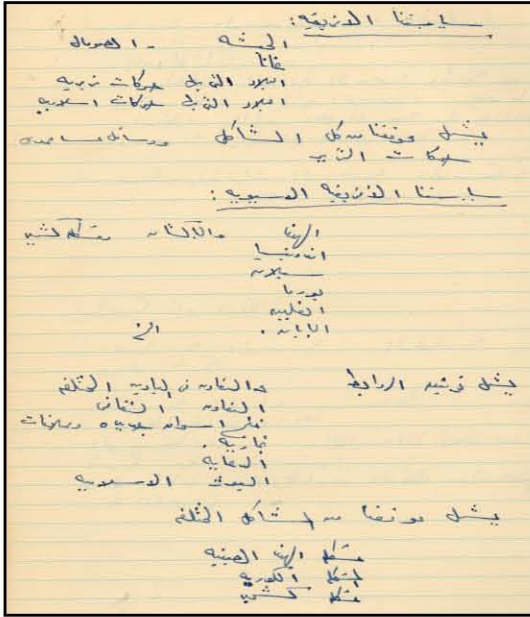 سياستنا الافريقيه :
الحبشه - الصومال
غانا
البلاد التى بها حركات تحريريه
البلاد التى بها حركات اسلاميه
يشمل موقفنا من كل المشاكل ووسائل مساعدة
حركات التحرير
سياستنا الافريقيه الاسيويه :
الهند والباكستان ومشكله كشمير
اندونيسيا
سيلان
بورما
الفلبين
اليابان . الخ
يشمل توثيق الروابط والتعاون فى الميادين المختلفه
التعاون الثقافى
فتح اسواق جديده وعلاقات
تجاريه .
الدعايه
البعوث الاسلاميه
يشمل موقفنا من المشاكل المختلفه
مشكله الهند الصينيه
المشكله الكوريه
مشكله كشمير